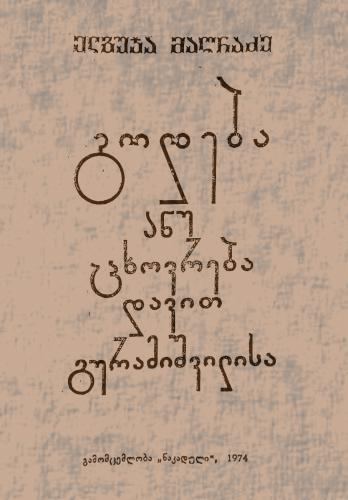 ელგუჯა მაღრაძე
გოდება
ანუ
ცხოვრება
დავით
გურამიშვილისა
გამომცემლობა „ნაკადული“, 1974